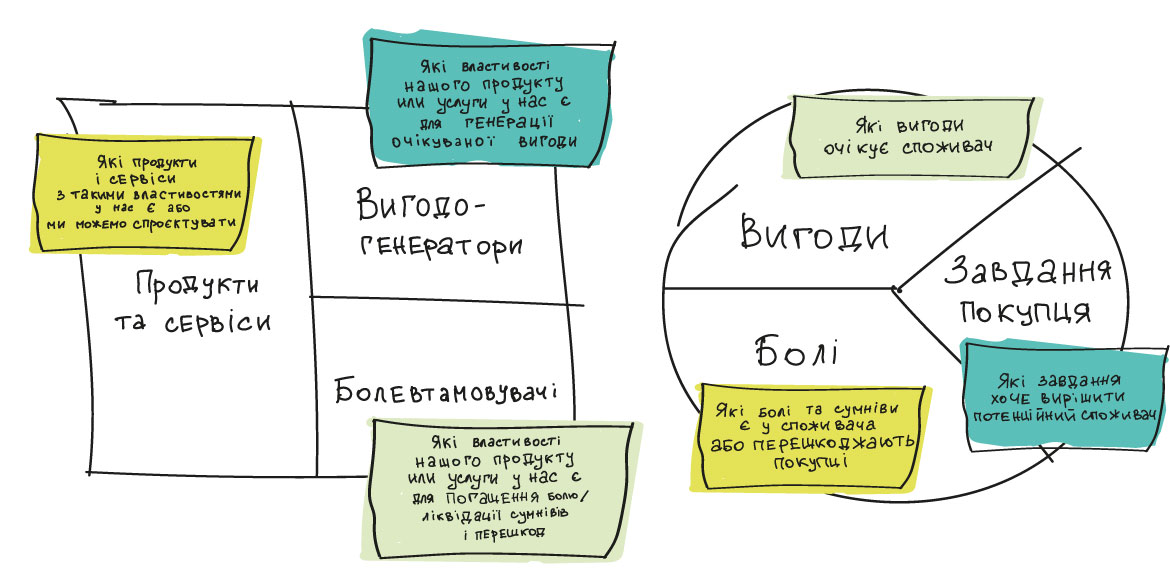 Які властивості
нашого продукту
или услуги у нас є
для генерації
очікуваної вигоди
Які продукти
і сервіси
з такими властивостями
у нас є або
ми можемо спроєктувати
Вигодо-
генератори
Продукти
та сервіси
Болевтамовувачі
Які властивості
нашого продукту
или услуги у нас є
для погашення болю/
ліквідації сумнівів
і перешкод
Які вигоди
очікує споживач
Вигоди
Завдання
покупця
Болі
Які завдання
хоче вирішити
потенційний споживач
Які болі та сумніви
є у споживача
або перешкоджають
покупці